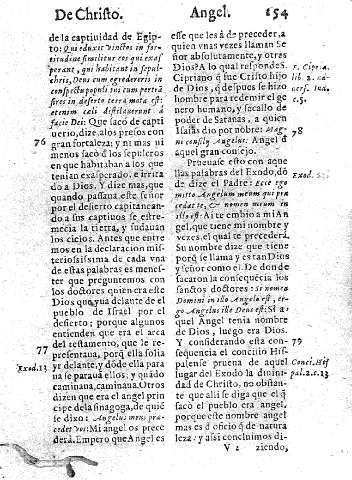 De Christo.
Angel.
154
de la captiuidad de Egip-
to: Qui eduxit vinctos in for-
titudine similiter eos qui exas-
perant, qui habitant in sepul-
chris, Deus cum egredereris in
conspectu populi tui cum pertrā
sires in deserto terra mota est:
etenim cœli distilauerunt à
facie Dei: Que sacó de capti
uerio, dize, a los presos con
gran fortaleza; y ni mas ni
menos sacò d'los sepulcros
en que habitaban a los que
tenian exasperado, e irrita
do a Dios. Y dize mas, que
quando passaua este señor
por el desierto capitanean-
do a sus captiuos se estre-
mecia la tierra, y sudauan
los cielos. Antes que entre
mos en la declaracion mis
teriosissima de cada vna
de estas palabras es menes-
ter que preguntemos con
los doctores quien era este
Dios que yua delante de el
pueblo de Israel por el
desierto; porque algunos
entienden que era el arca
del testamento, que le re-
presentaua, porq̃ ella solia
yr delante, y dōde ella para
ua se paraua ellos; y quādo
caminaua, caminaua. Otros
dizen que era el angel prin
cipe dela sinagoga, de quiē
se dixo: Angelus meus præ-
cedet vos: Mi angel os prece
derà. Empero que Angel es
76
77
Exod.13
esse que les à de preceder, a
quien vnas vezes llaman Se
ñor absolutamente, y otras
Dios? A lo qual responde S.
Cipriano q̃ fue Cristo hijo
de Dios, q̃ despues se hizo
hombre para redemir el ge
nero humano, y sacallo de
poder de Satanas, a quien
Isaias dio por nōbre: Mag-
ni consilij Angelus. Angel d'
aquel gran consejo.
Prueuase esto con aque
llas palabras del Exodo, dō
de dize el Padre: Ecce ego
mitto Angelum meum qui præ
cedat te, & nomen meum in
illo est: A i te embio a mi An
gel, que tiene mi nombre y
vezes, el qual te precederà.
Su nombre dize que tiene
porq̃ se llama y es tan Dius
y señor como el. De donde
sacaron la consequēcia los
sanctos doctores: Si nomen
Domini in illo Angelo est, er-
go Angelus ille Deus est: Si a-
quel Angel tenia nombre
de Dios, luego era Dios.
Y considerando esta con-
sequencia el concilio His-
palense prueua de aquel
lugar del Exodo la diuini-
dad de Christo, no obstan-
te que alli se diga que el q̃
sacò el pueblo era angel,
porque este nombre angel
mas es d' oficio q̃ de natura
leza; y assi concluimos di-
V 2 ziendo,
lib. 2.
c.5.
78
Exod.
79
Conci. His
pal.2.c.13